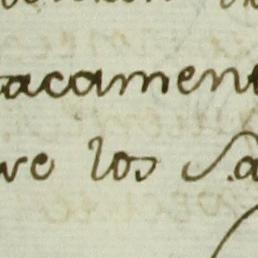 acamen
ve los Sa